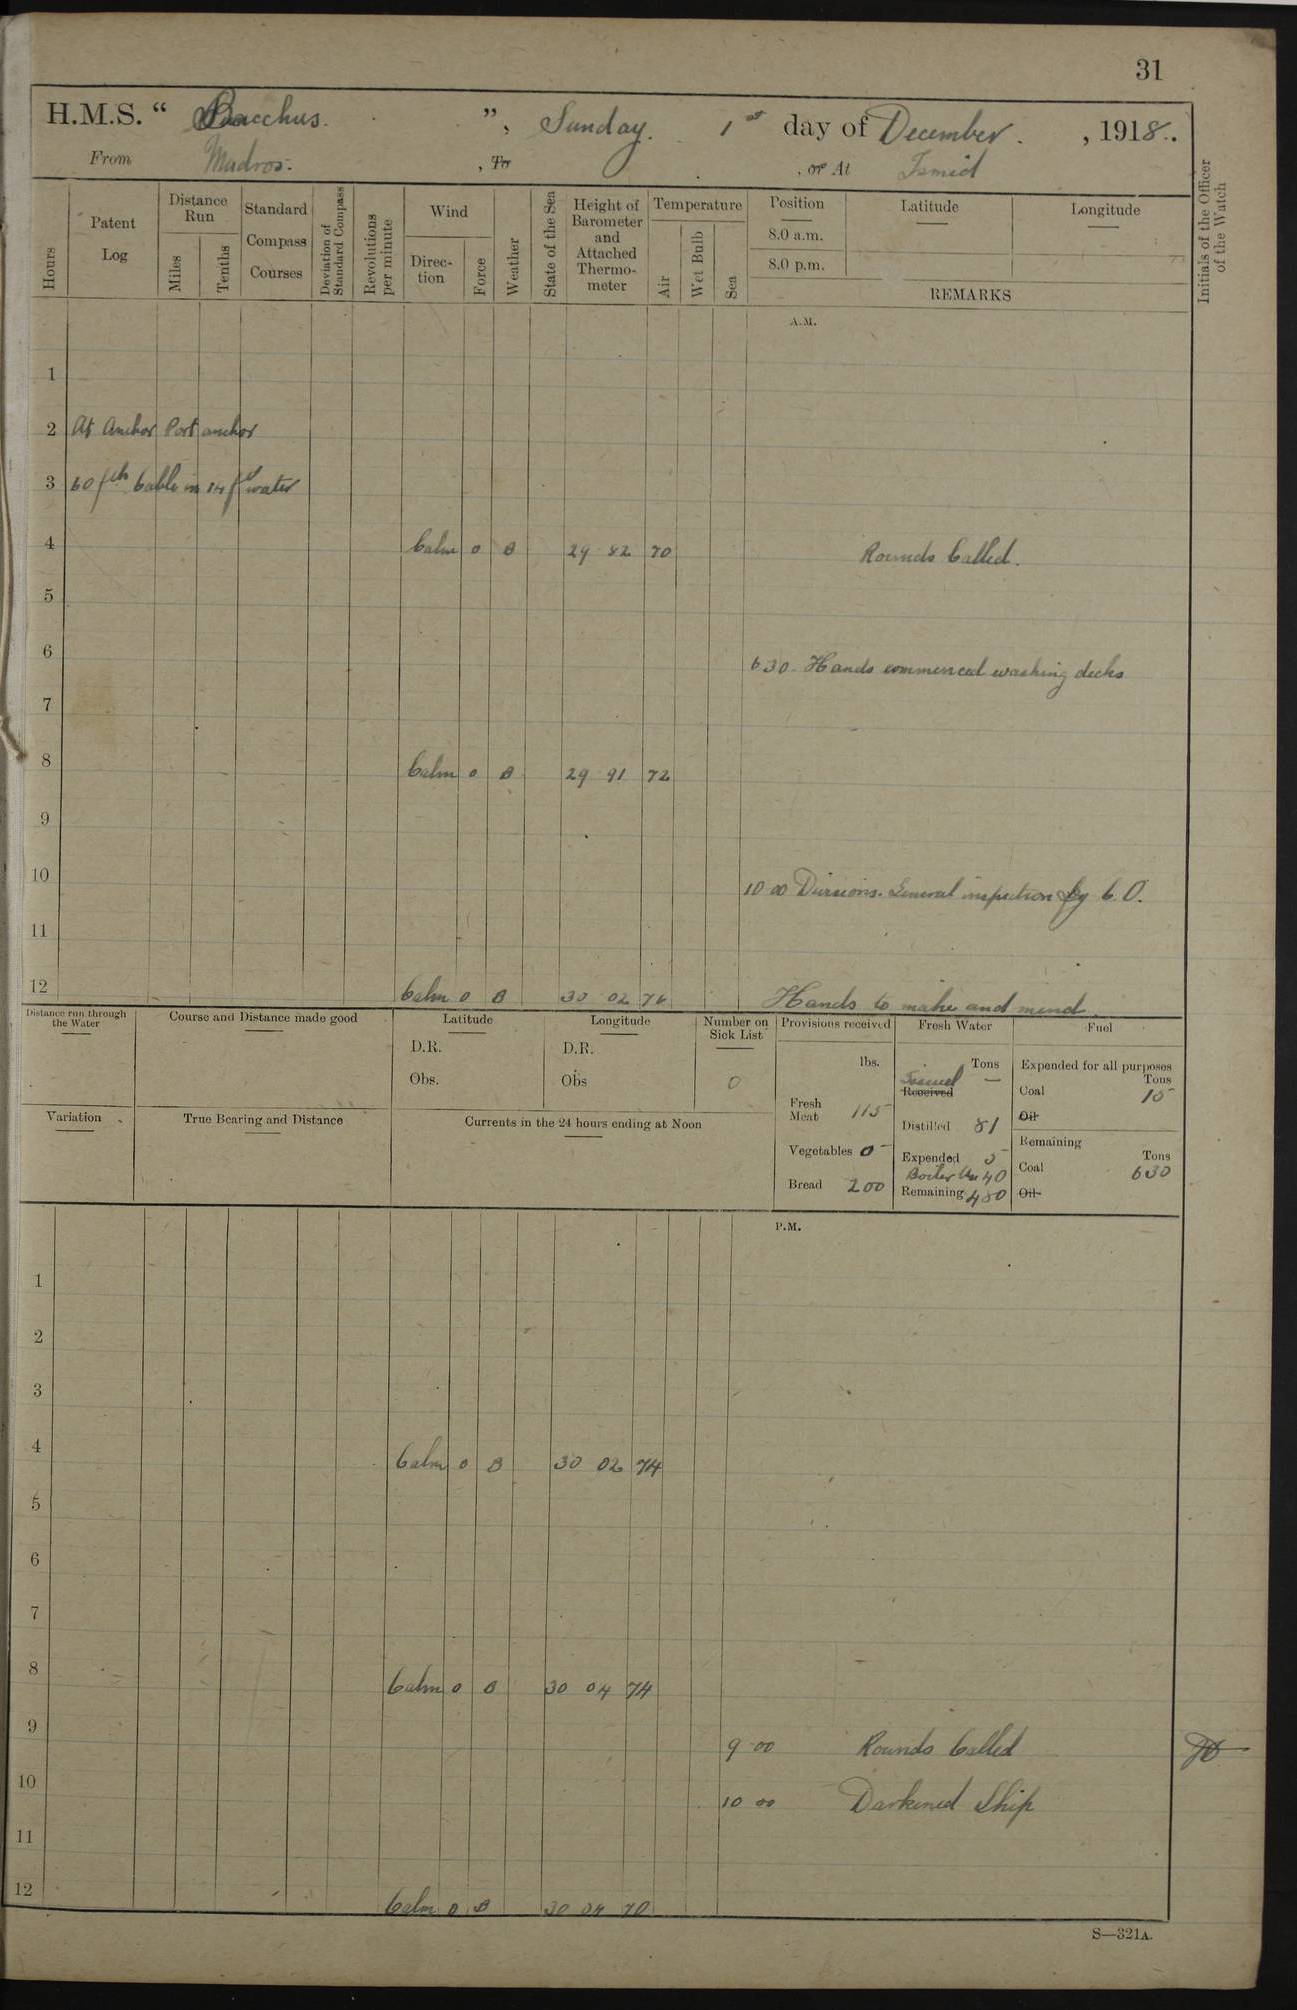 31
H.M.S. “ Bacchus. ”, Sunday. 1st day of December. , 1918.
From Mudros. , To , or At Ismid
Hours
Patent Log
Distance Run
Miles
Tenths
Standard Compass Courses
Deviation of Standard Compass
Revolutions per minute
Wind
Direction
Force
Weather
State of the Sea
Height of Barometer and Attached Thermometer
Temperature
Air
Wet Bulb
Sea
Position
8.0 a.m.
8.0 p.m.
Latitude
Longitude
REMARKS
Initials of the Officer of the Watch
A.M.
1
2 At Anchor Port anchor
3 60 fth Cable in 14 fth water
4 Calm 0 B 29 82 70 Rounds Called.
5
6
6 30. Hands commenced washing decks
7
8 Calm 0 B 29 91 72
9
10 10 00 Divisions. General inspection by C.O.
11
12 Calm 0 B 30 02 76 Hands to make and mend.
Distance run through the Water
Course and Distance made good
Latitude
D.R.
Obs.
Longitude
D.R.
Obs
Number on Sick List
0
Variation
True Bearing and Distance
Currents in the 24 hours ending at Noon
Provisions received
lbs.
Fresh Meat 115
Vegetables 0
Bread 200
Fresh Water
Tons
Issued —
Received
Distilled 81
Expended 5
Boiler Use 40
Remaining 480
Fuel
Expended for all purposes
Tons
Coal 15
Oil
Remaining
Tons
Coal 630
Oil
P.M.
1
2
3
4 Calm 0 B 30 02 74
5
6
7
8 Calm 0 B 30 04 74
9 9 00 Rounds Called
10 10 00 Darkened Ship
11
12 Calm 0 B 30 04 70
S—321A.